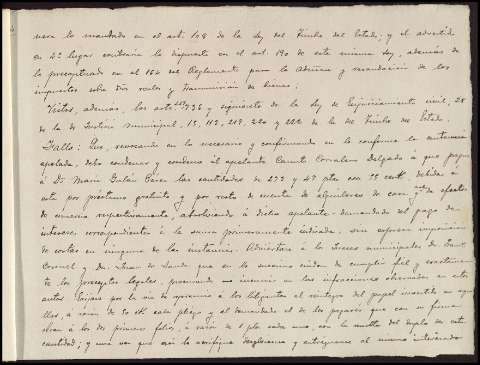 nera lo mandado en el art. 108 de la Ley del Timbre del Estado; y el advertido
en 2º lugar contraria lo dispuesto en el art. 190 de esta misma Ley, además de
lo preceptuado en el 164 del Reglamento para la Administración de los
impuestos sobre Dros reales y transmisión de bienes:
Vistos, además, los arts. 736 y siguientes de la Ley de Enjuiciamiento civil; 28
de la de Justicia municipal, 15, 112, 219, 220 y 222 de la del Timbre del Estado.
Fallo: Que, revocando en lo necesario y confirmando en lo conforme la sentencia
apelada, debo condenar y condeno al apelante Canuto Corrales Delgado á que pague
á Dª María Galán las cantidades de 272 y 47 ptas con 75 cents. debidas á
esta por préstamo gratuito y por resto de cuenta de alquileres de casa y de efectos
de respectivamente, absolviendo á dicho apelante-demandado del pago de
intereses correspondientes á la suma primeramente indicada, sin expresa imposición
de costas en ninguna de las instancias. Adviértase á los Jueces municipales
Coronel y Dn. Juan de que en lo sucesivo cuiden de cumplir fiel y exactamente
los preceptos legales, procurando no incurrir en las infracciones observadas en estos
autos. Exíjase por la vía de apremio á los litigantes el reintegro del papel invertido en aquellos,
á razón de pliego y al demandado el de los pagarés que con su firma
obran á los dos primeros folios, á razón de 1 pta cada uno, con la multa del duplo de esta
cantidad; y una vez que así se verifique desglósense y entréguense al mismo interesado